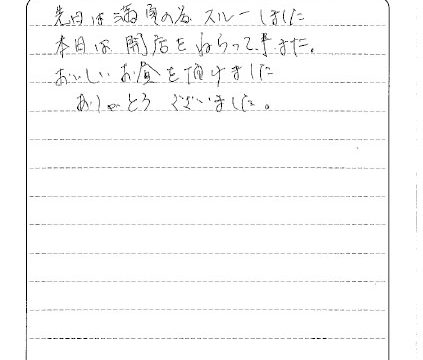 先日は満員の為スルーしました
本日は開店をねらって来ました。
おいしいお昼を頂けました
ありがとうございました。